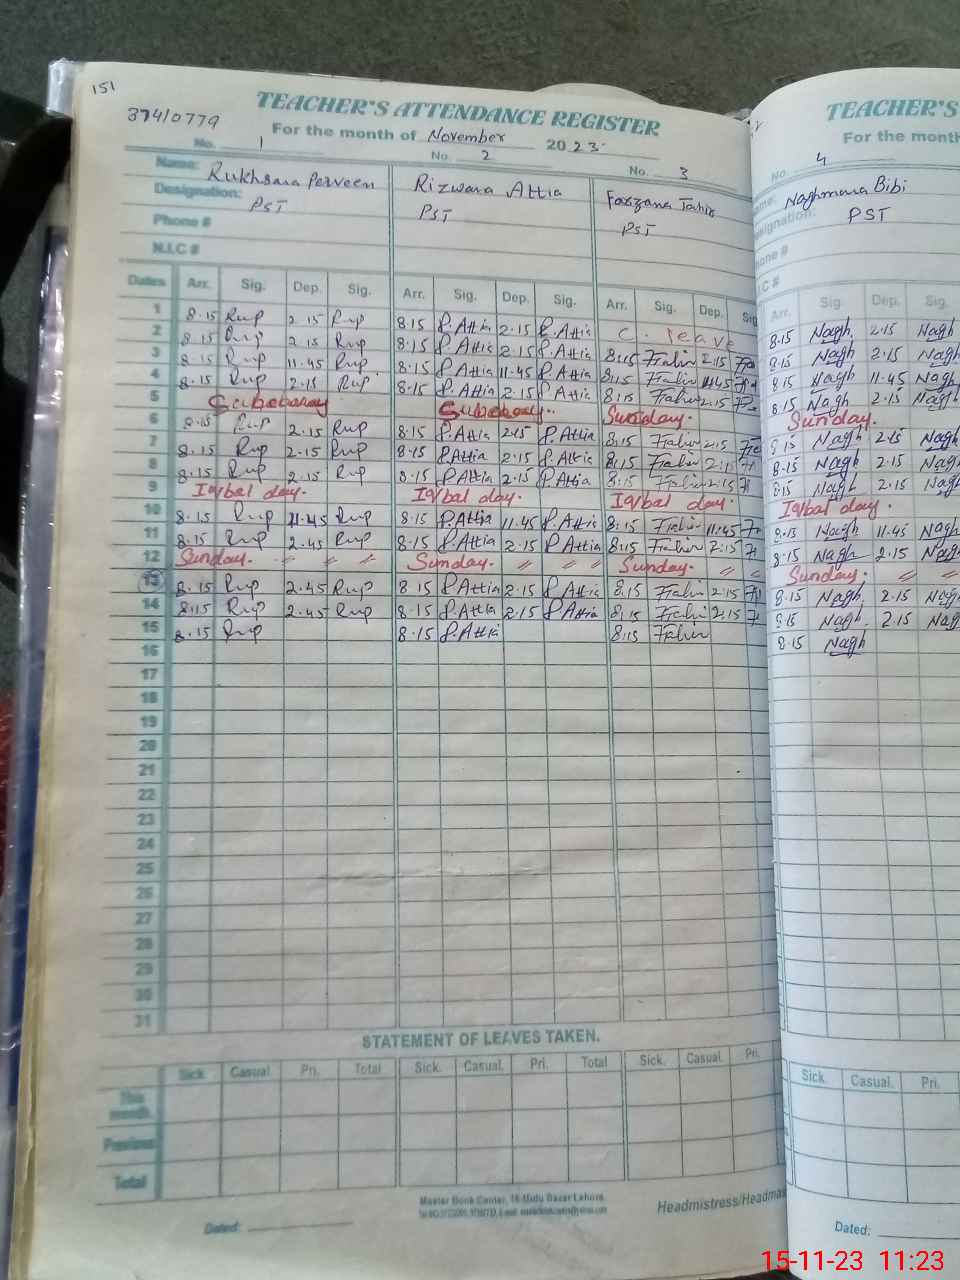 151
TEACHER'S ATTENDANCE REGISTER
37410779
For the month of November 2023
No. 1 No. 2 No. 3
Name: Rukhsana Perveen Rizwana Attia Farzana Tahir
Designation: PST PST PST
Phone #
N.I.C #
Dates Arr. Sig. Dep. Sig. Arr. Sig. Dep. Sig. Arr. Sig. Dep. Sig
1 8.15 Rup 2.15 Rup 8.15 R.Attia 2.15 R.Attia C. leave
2 8.15 Rup 2.15 Rup 8.15 R.Attia 2.15 R.Attia 8:15 Tahir 2.15
3 8.15 Rup 11.45 Rup 8.15 R.Attia 11.45 R.Attia 8:15 Tahir 11.45
4 8.15 Rup 2.15 Rup 8.15 R.Attia 2.15 R.Attia 8:15 Tahir 2.15
5 Sunday.
6 8.15 Rup 2.15 Rup 8.15 R.Attia 2.15 R.Attia 8:15 Tahir 2.15
7 8.15 Rup 2.15 Rup 8.15 R.Attia 2.15 R.Attia 8:15 Tahir 2.15
8 8.15 Rup 2.15 Rup 8.15 R.Attia 2.15 R.Attia 8:15 Tahir 2.15
9 Iqbal day. Iqbal day. Iqbal day.
10 8.15 Rup 11.45 Rup 8.15 R.Attia 11.45 R.Attia 8:15 Tahir 11.45
11 8.15 Rup 2.45 Rup 8.15 R.Attia 2.15 R.Attia 8:15 Tahir 2:15
12 Sunday. " " " Sunday. " " " Sunday. " "
13 8.15 Rup 2.45 Rup 8.15 R.Attia 2.15 R.Attia 8.15 Tahir 2.15
14 8.15 Rup 2.45 Rup 8.15 R.Attia 2.15 R.Attia 8.15 Tahir 2.15
15 8.15 Rup 8.15 R.Attia 8:15 Tahir
16
17
18
19
20
21
22
23
24
25
26
27
28
29
30
31
STATEMENT OF LEAVES TAKEN.
Sick. Casual. Pri. Total Sick. Casual. Pri. Total Sick. Casual. Pri.
This month.
Previous
Total
Master Book Center, 16-Urdu Bazar Lahore.
Dated: Headmistress/Headmas
TEACHER'S
For the month
No. 4
Naghmana Bibi
PST
Arr. Sig. Dep. Sig.
8.15 Nagh. 2.15 Nagh
8.15 Nagh 2.15 Nagh
8.15 Nagh 11.45 Nagh
8.15 Nagh 2.15 Nagh
Sunday.
8.15 Nagh 2.15 Nagh
8.15 Nagh 2.15 Nagh
8.15 Nagh 2.15 Nagh
Iqbal day.
8.15 Nagh 11.45 Nagh
8.15 Nagh 2.15 Nagh
Sunday. " "
8.15 Nagh. 2.15 Nagh
8.15 Nagh. 2.15 Nag
8.15 Nagh
Sick. Casual. Pri.
Dated:
15-11-23 11:23